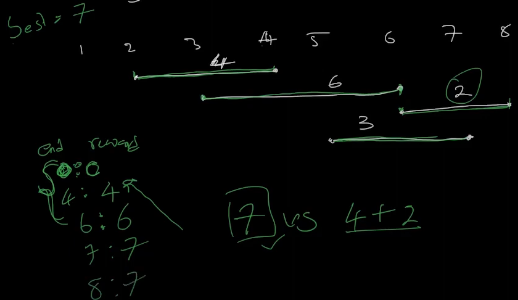 best = 7
1 2 3 4 5 6 7 8
4
6
2
3
end reward
0 : 0
4 : 4
6 : 6
7 : 7
8 : 7
7 vs 4 + 2